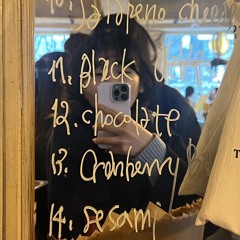 10. Jalapeno chee
11. Black
12. chocolate
13. Cranberry
14. Sesami